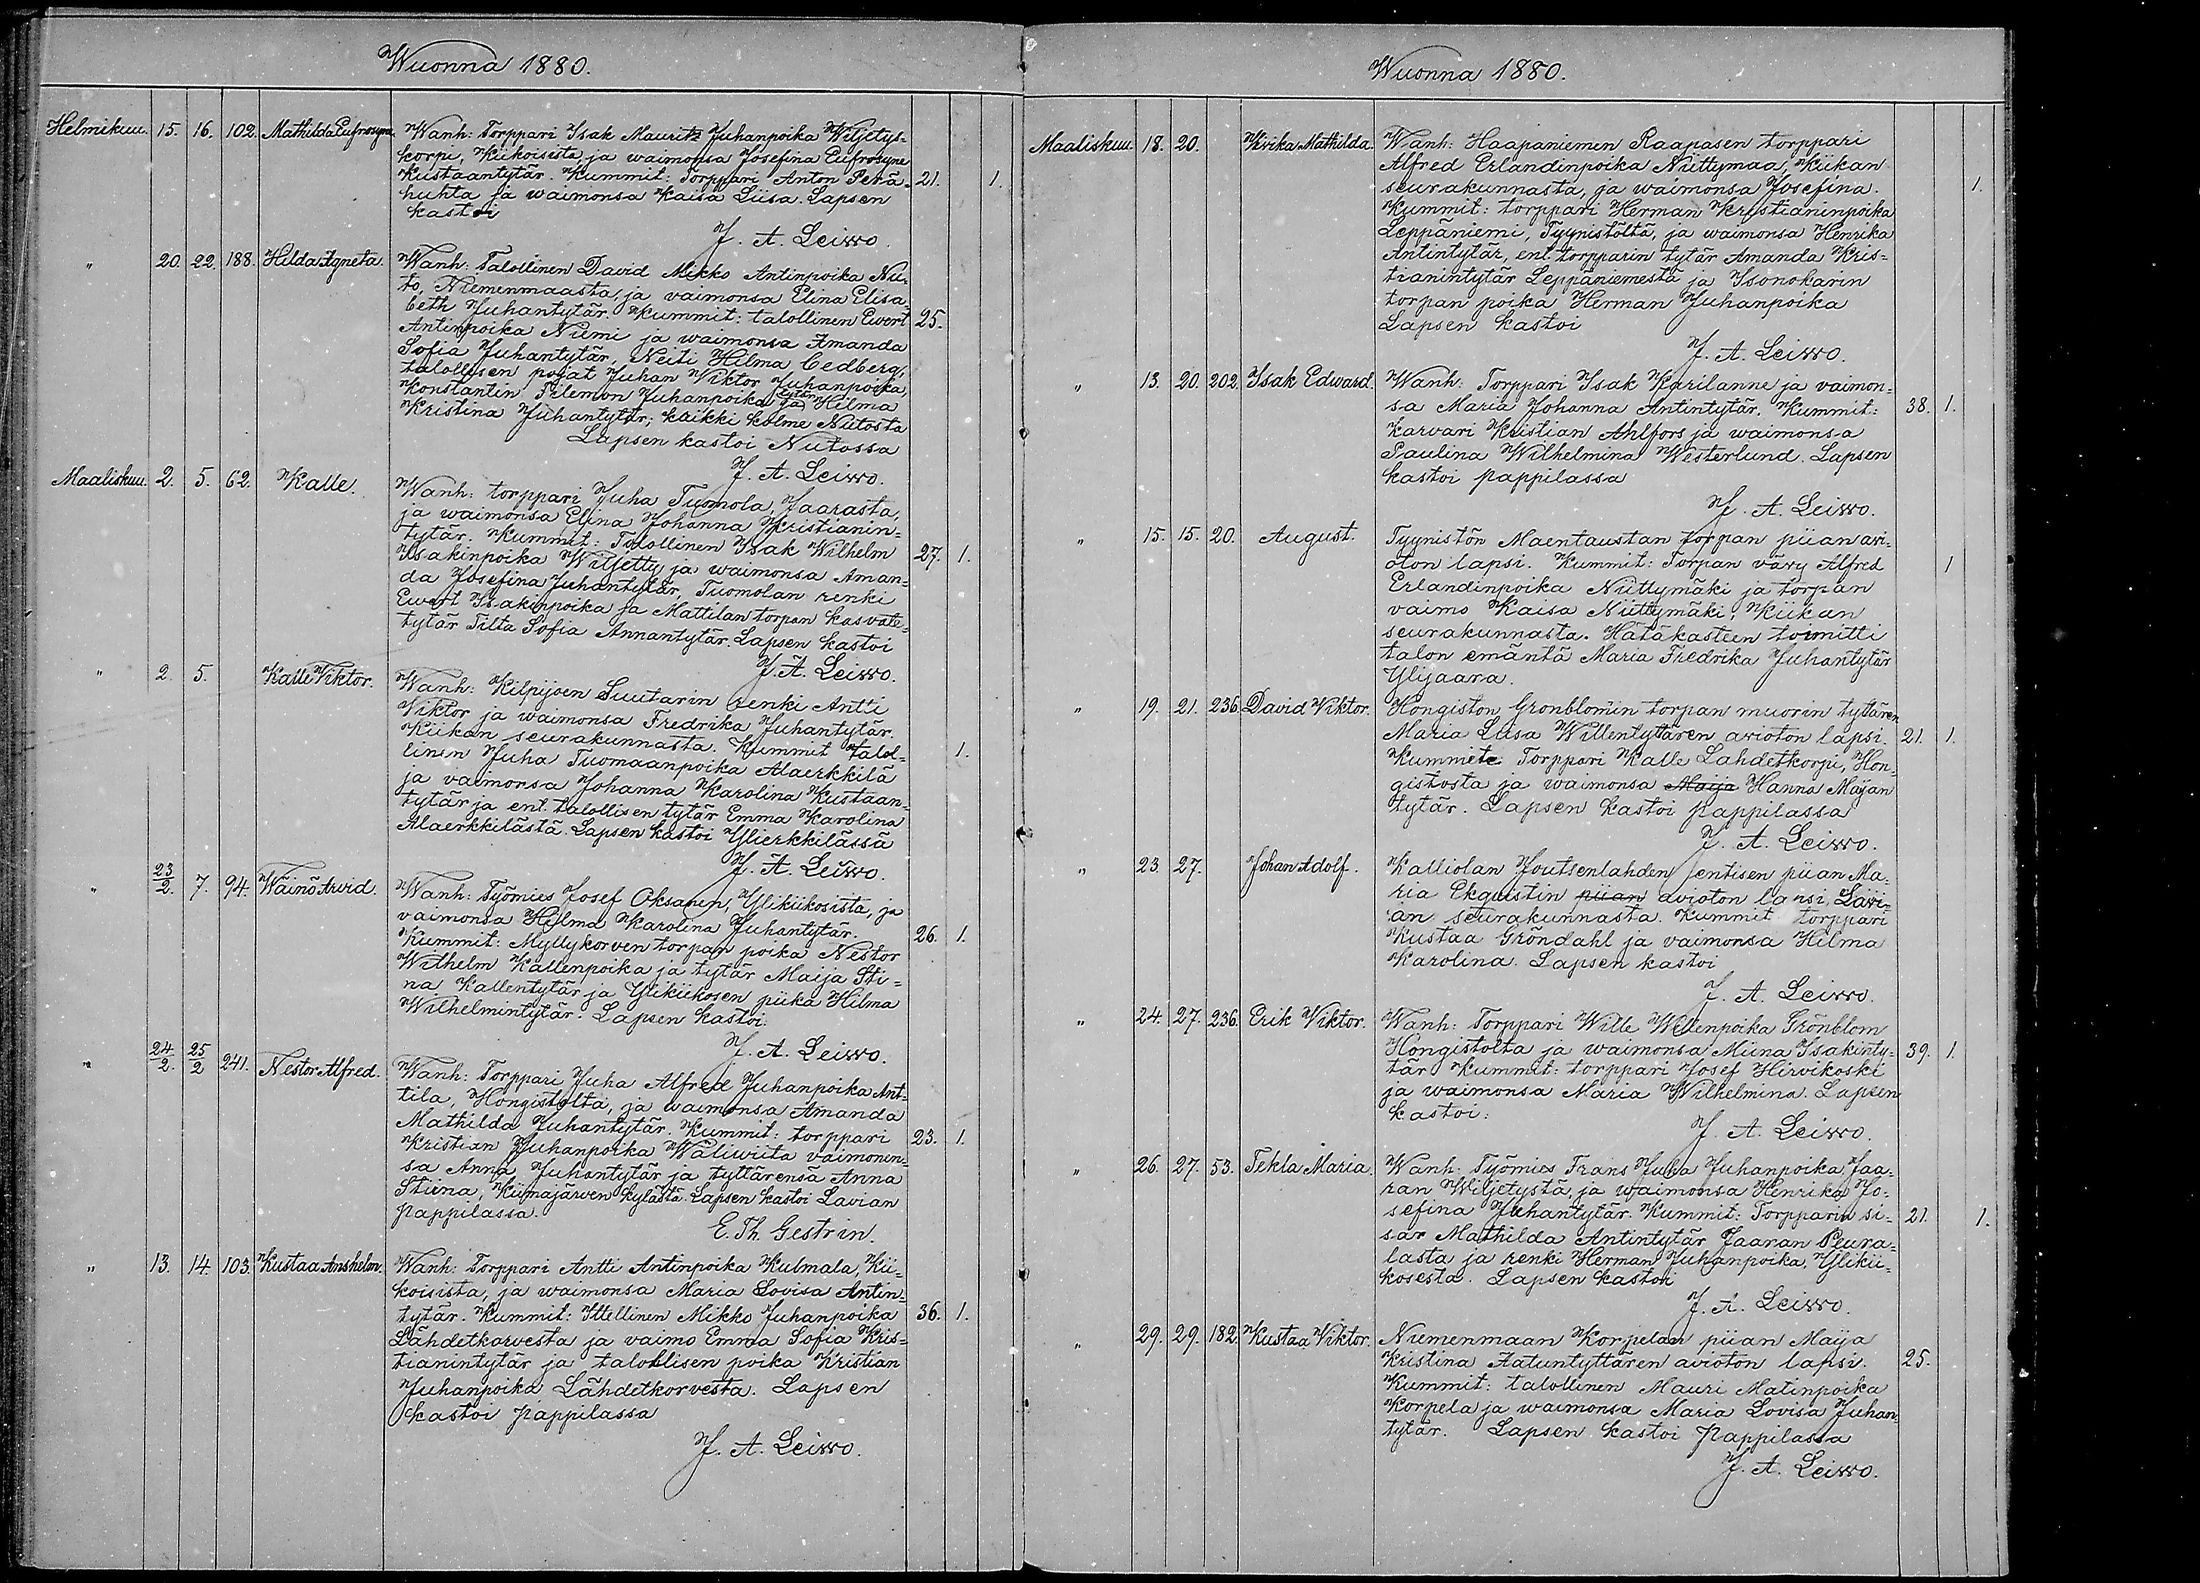 Wuonna 1880.
Helmikuu. 15. 16. 102. Mathilda Eufrosyna. Wanh: Torppari Isak Mauritz Juhanpoika Wiljetys-
korpi, Kiikoisista, ja waimonsa Josefina Eufrosyne
Kustaantytär. Kummit: Torppari Anton Perä- 21. 1.
huhta ja waimonsa Kaisa Liisa. Lapsen
kastoi
J. A. Leiwo.
" 20. 22. 188. Hilda Agneta. Wanh: Talollinen David Mikko Antinpoika Nii-
to, Niemenmaasta, ja vaimonsa Elina Elisa-
beth Juhantytär. Kummit: talollinen Ewert 25.
Antinpoika Niemi ja waimonsa Amanda
Sofia Juhantytär, Neiti Hilma Cedberg,
talollisen pojat Juhan Viktor Juhanpoika,
Konstantin Filemon Juhanpoika ja Hilma
Kristina Juhantytär; kaikki kolme Niitosta
Lapsen kastoi Niitossa
J. A. Leiwo.
Maaliskuu. 2. 5. 62. Kalle. Wanh: torppari Juha Tuomola, Jaarasta,
ja waimonsa Elina Johanna Kristianin-
tytär. Kummit: Talollinen Isak Wilhelm 27. 1.
Isakinpoika Wiljetty ja waimonsa Aman-
da Josefina Juhantytär, Tuomolan renki
Ewert Isakinpoika ja Mattilan torpan kasvate-
tytär Tilta Sofia Annantytär. Lapsen kastoi
J. A. Leiwo.
" 2. 5. Kalle Viktor. Wanh: Kilpijoen Suutarin renki Antti
Viktor ja waimonsa Fredrika Juhantytär.
Kiikan seurakunnasta. Kummit talol-
linen Juha Tuomaanpoika Alaerkkilä 1.
ja vaimonsa Johanna Karolina Kustaan-
tytär ja ent. talollisen tytär Emma Karolina
Alaerkkilästä. Lapsen kastoi Ylierkkilässä
J. A. Leiwo.
" 23/2. 7. 94. Wäinö Arvid. Wanh: Työmies Josef Oksanen, Ylikiikosista, ja
vaimonsa Hilma Karolina Juhantytär. 26. 1.
Kummit: Myllykorven torpan poika Nestor
Wilhelm Kallenpoika ja tytär Maija Sti-
na Kallentytär ja Ylikiikosen piika Hilma
Wilhelmintytär. Lapsen kastoi:
J. A. Leiwo.
" 24/2. 25/2 241. Nestor Alfred. Wanh: Torppari Juha Alfred Juhanpoika Ant-
tila, Hongistolta, ja waimonsa Amanda
Mathilda Juhantytär. Kummit: torppari 23. 1.
Kristian Juhanpoika Waliwiita vaimonen-
sa Anna Juhantytär ja tyttärensä Anna
Stiina, Kiimajärwen kylästä. Lapsen kastoi Lavian
pappilassa.
E. Th. Gestrin.
" 13. 14. 103. Kustaa Anshelm. Wanh: Torppari Antti Antinpoika Kulmala, Kii-
koisista, ja waimonsa Maria Lovisa Antin-
tytär. Kummit: Ittellinen Mikko Juhanpoika 36. 1.
Lähdetkorvesta ja vaimo Emma Sofia Kris-
tianintytär ja talollisen poika Kristian
Juhanpoika Lähdetkorvesta. Lapsen
kastoi pappilassa
J. A. Leiwo.
Wuonna 1880.
Maaliskuu. 18. 20. Wivika Mathilda. Wanh: Haapaniemen Raapasen torppari
Alfred Erlandinpoika Niittymaa, Kiikan
seurakunnasta, ja waimonsa Josefina. 1.
Kummit: torppari Herman Kristianinpoika
Leppäniemi, Tyynistöltä, ja waimonsa Henrika
Antintytär, ent. torpparin tytär Amanda Kris-
tianintytär Leppäniemestä ja Isonokarin
torpan poika Herman Juhanpoika
Lapsen kastoi
J. A. Leiwo.
" 13. 20. 202. Isak Edward. Wanh: Torppari Isak Karilanne ja vaimon-
sa Maria Johanna Antintytär. Kummit: 38. 1.
karvari Kristian Ahlfors ja waimonsa
Paulina Wilhelmina Westerlund. Lapsen
kastoi pappilassa
J. A. Leiwo.
" 15. 15. 20. August. Tyynistön Maentaustan torpan piian avi-
oton lapsi. Kummit: Torpan vävy Alfred 1
Erlandinpoika Niittymäki ja torpan
vaimo Kaisa Niittymäki, Kiikan
seurakunnasta. Hätäkasteen toimitti
talon emäntä Maria Fredrika Juhantytär
Ylijaara.
" 19. 21. 236. David Wiktor. Hongiston Gronblomin torpan muorin tyttären
Maria Liisa Willentyttären avioton lapsi 21. 1.
Kummit: Torppari Kalle Lahdetkorpi, Hon-
gistosta ja waimonsa Maija Hanna Maijan
tytär. Lapsen kastoi pappilassa
J. A. Leiwo.
" 23. 27. Johan Adolf. Kalliolan Joutsenlahden entisen piian Ma-
ria Ekqvistin piian avioton lapsi, Lavi-
an seurakunnasta. Kummit: torppari
Kustaa Gröndahl ja vaimonsa Hilma
Karolina. Lapsen kastoi
J. A. Leiwo.
" 24. 27. 236. Erik Viktor. Wanh: Torppari Wille Willenpoika Grönblom
Hongistolta ja waimonsa Miina Isakinty- 39. 1.
tär Kummit: torppari Josef Hirvikoski
ja waimonsa Maria Wilhelmina. Lapsen
kastoi:
J. A. Leiwo.
" 26. 27. 53. Tekla Maria. Wanh: Työmies Frans Juha Juhanpoika Jaa-
ran Wiljetystä, ja waimonsa Henrika Jo-
sefina Juhantytär. Kummit: Torpparin si- 21. 1.
sar Mathilda Antintytär Jaaran Peura-
lasta ja renki Herman Juhanpoika, Ylikii-
kosesta. Lapsen kastoi
J. A. Leiwo.
" 29. 29. 182. Kustaa Viktor. Niemenmaan Korpelan piian Maija
Kristina Aatuntyttären avioton lapsi. 25.
Kummit: talollinen Mauri Matinpoika
Korpela ja waimonsa Maria Lovisa Juhan-
tytär. Lapsen kastoi Pappilassa
J. A. Leiwo.